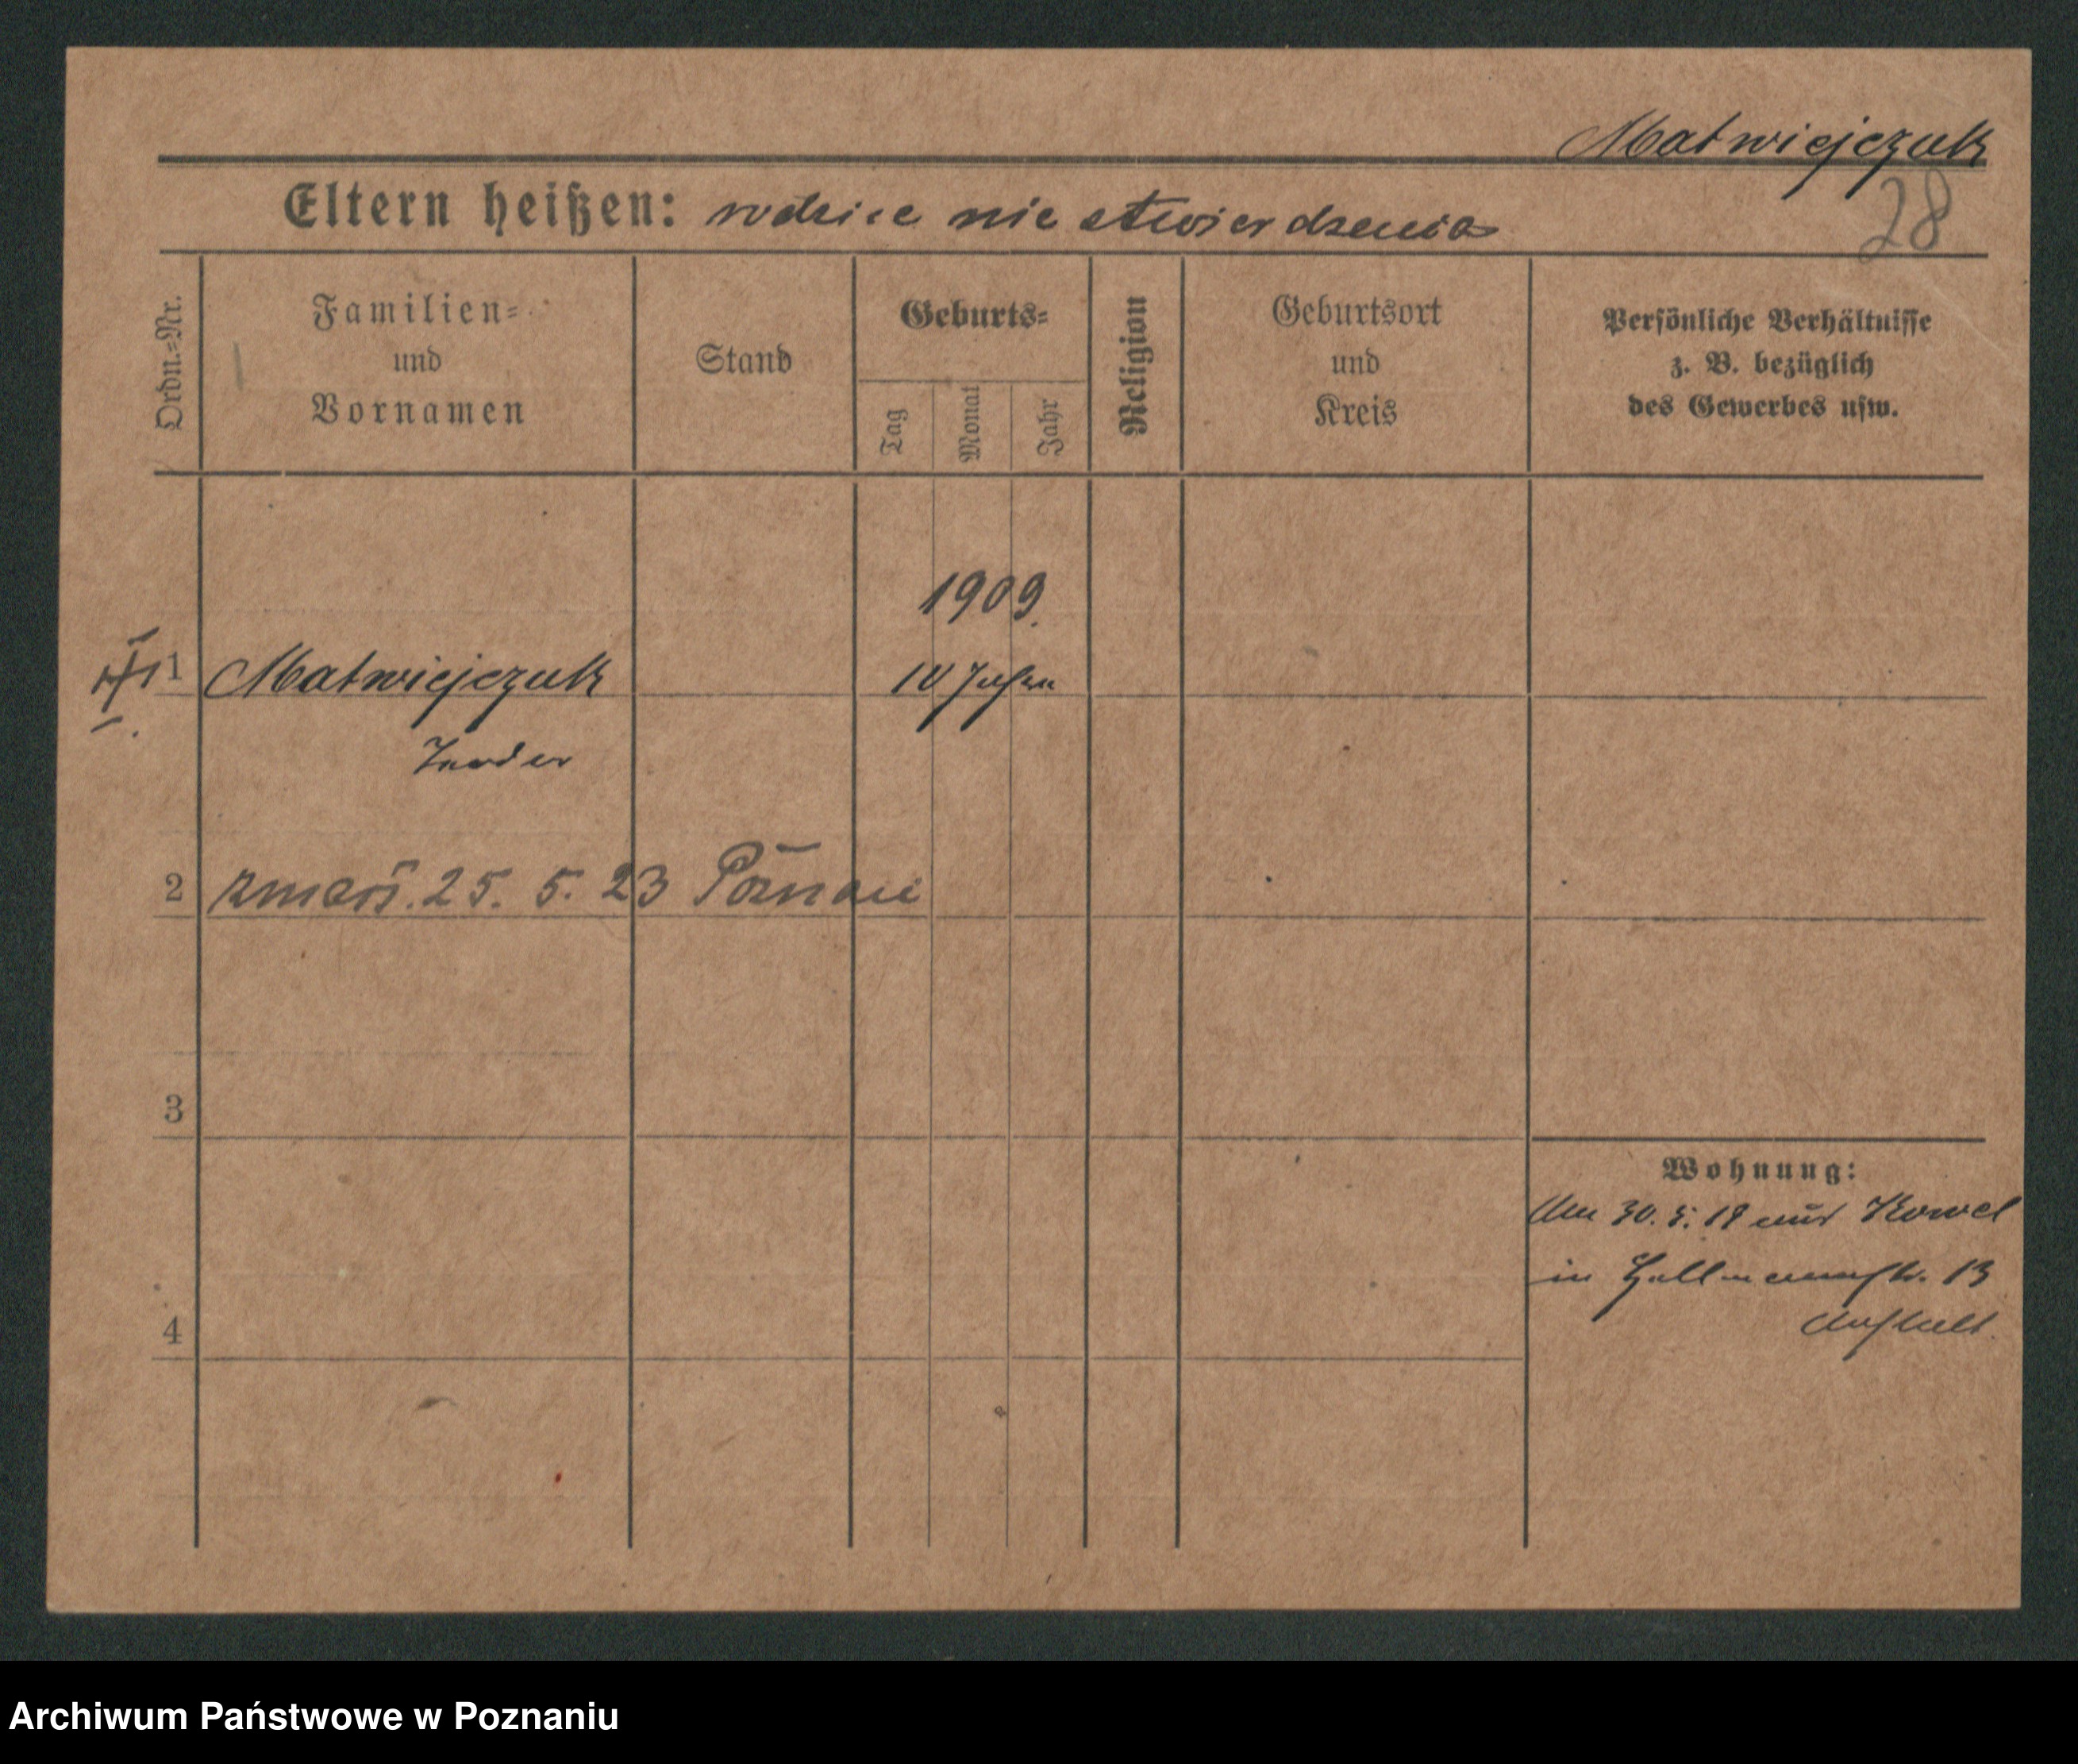 Matwiejczuk
Eltern heißen: rodzice nie stwierdzenia
28
Ordn.-Nr.
Familien-
und
Vornamen
Stand
Geburts-
Tag
Monat
Jahr
Religion
Geburtsort
und
Kreis
Persönliche Verhältnisse
z. B. bezüglich
des Gewerbes usw.
1909.
1 Matwiejczuk 10 Jahre
2 zmarł. 25. 5. 23 Poznań
3
Wohnung:
30. 5. 19 aus Kowel
in 13
Anstalt
4
Archiwum Państwowe w Poznaniu